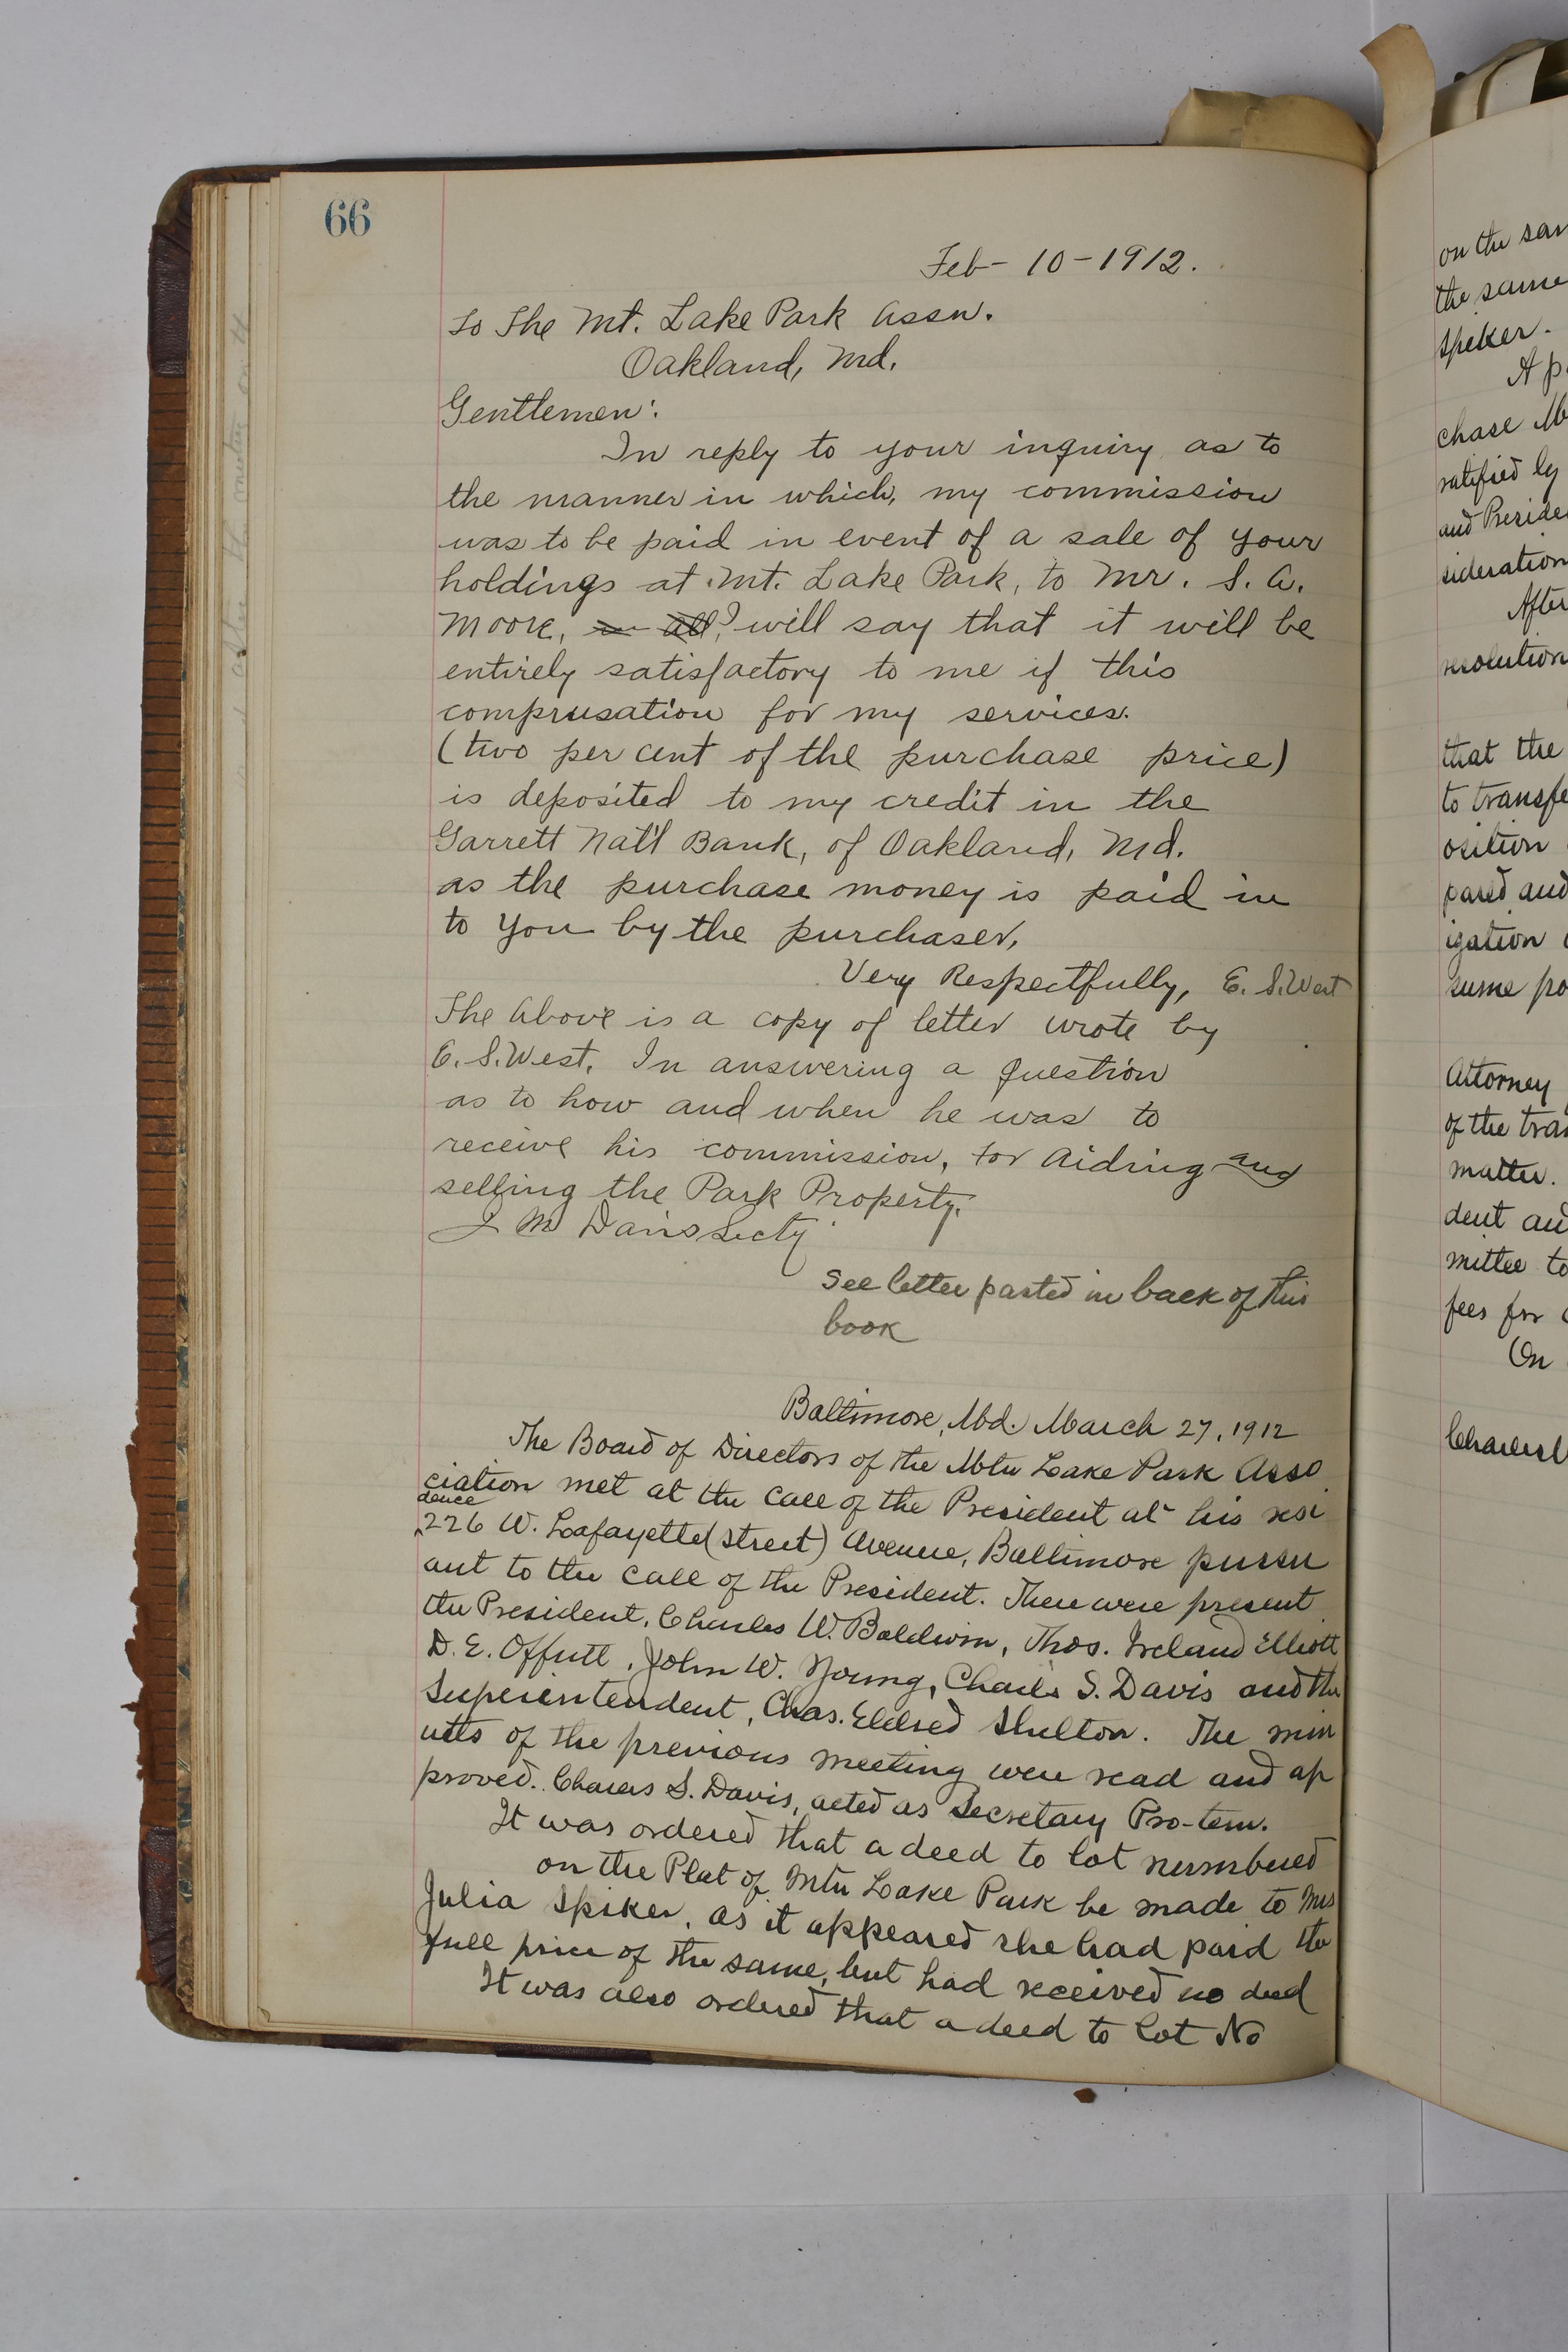 66
Feb- 10-1912.
To The Mt. Lake Park Assn.
Oakland, Md.
Gentlemen:
In reply to your inquiry as to
the manner in which, my commission
was to be paid in event of a sale of your
holdings at Mt. Lake Park, to Mr. S. A.
Moore, will say that it will be
entirely satisfactory to me if this
comprusation for my services.
(two per cent of the purchase price)
is deposited to my credit in the
Garrett Nat'l Bank, of Oakland, Md.
as the purchase money is paid in
to you by the purchaser,
Very Respectfully, E. S. West
The Above is a copy of letter wrote by
E. S. West. In answering a question
as to how and when he was to
receive his commission, for aiding and
selling the Park Property.
M Davis Secty
see letter pasted in back of this
book
Baltimore, Md. March 27, 1912
The Board of Directors of the Mtn Lake Park Asso
ciation met at the call of the President at his resi
dence
226 W. Lafayette (street) Avenue, Baltimore pursu
ant to the call of the President. There were present
the President, Charles W. Baldwin, Thos. Ireland Elliott
D. E. Offutt, John W. Young, Charles S. Davis and the
Superintendent, Chas. Eldred Shelton. The min
utes of the previous meeting were read and ap
proved. Charles S. Davis, acted as Secretary Pro-tem.
It was ordered that a deed to lot numbered
on the Plat of Mtn Lake Park be made to Mrs
Julia Spiker, as it appeared she had paid the
full price of the same, but had received no deed
It was also ordered that a deed to Lot No
on the
the same
Spiker.
A
chase
ratified by
and
After
resolution
that the
to
pared and
Attorney
of the
matter.
dent
mittee to
fees for
On